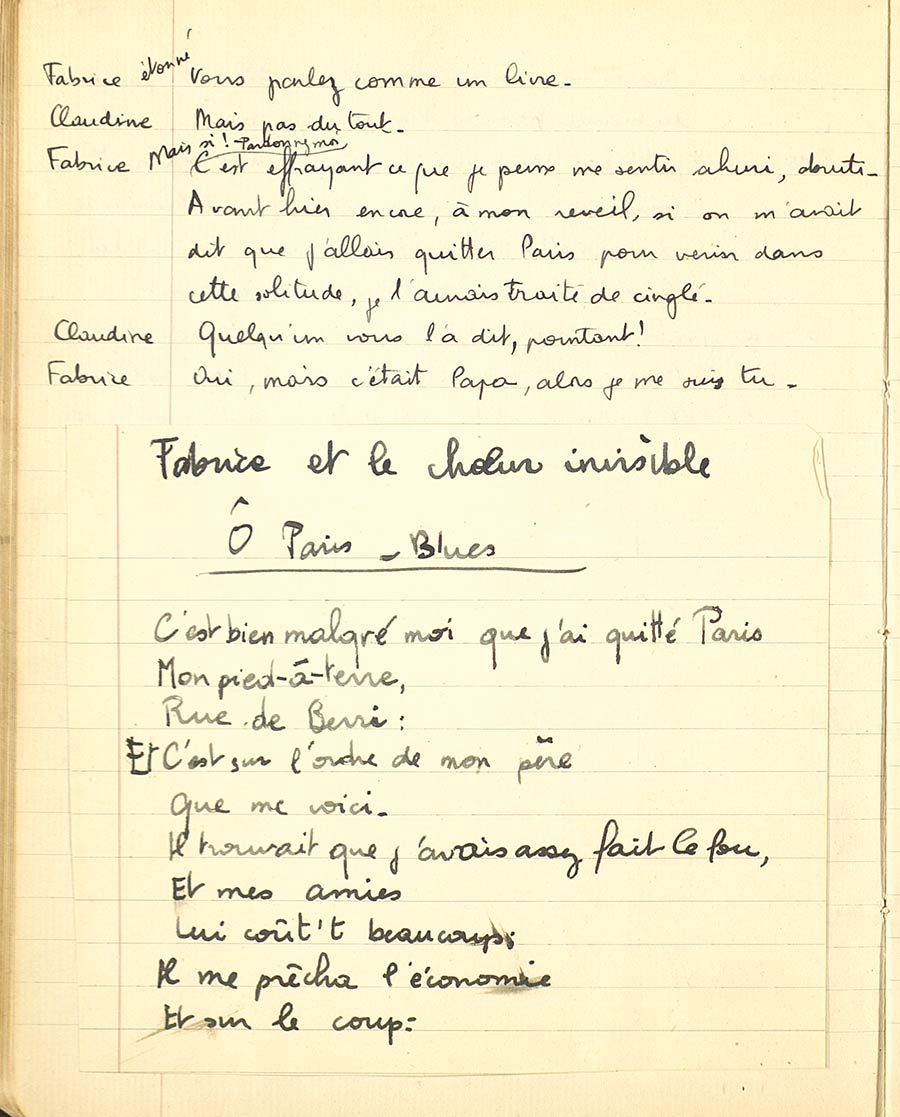 Fabrice étonné Vous parlez comme un livre.
Claudine Mais pas du tout.
Fabrice Mais si ! Pardonnez moi,
C'est effrayant ce que je peux me sentir ahuri, abruti.
Avant hier encore, à mon reveil, si on m'avait
dit que j'allais quitter Paris pour venir dans
cette solitude, je l'aurais traité de cinglé.
Claudine Quelqu'un vous l'a dit, pourtant !
Fabrice Oui, mais c'était Papa, alors je me suis tu.
Fabrice et le chœur invisible
Ô Paris - Blues
C'est bien malgré moi que j'ai quitté Paris
Mon pied-à-terre,
Rue de Berri :
Et C'est sur l'ordre de mon père
Que me voici.
Il trouvait que j'avais assez fait le fou,
Et mes amies
Lui coût't beaucoup ;
Il me prêcha l'économie
Et sur le coup :